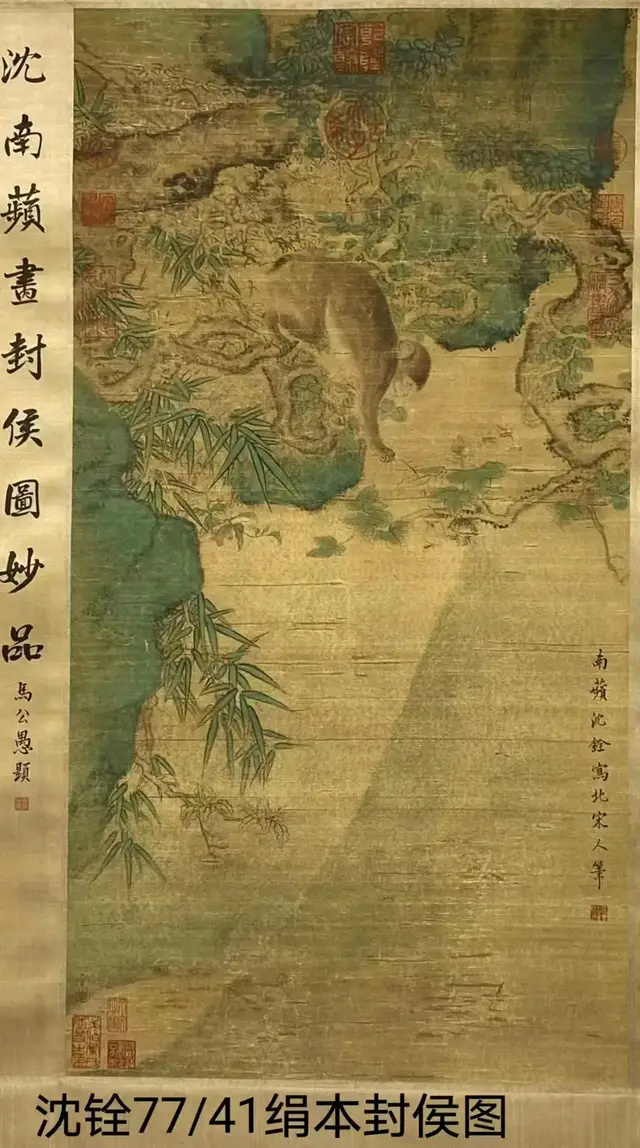 沈南蘋畫封侯圖妙品
馬公愚題
南蘋沈銓寫北宋人筆
沈铨77/41绢本封侯图